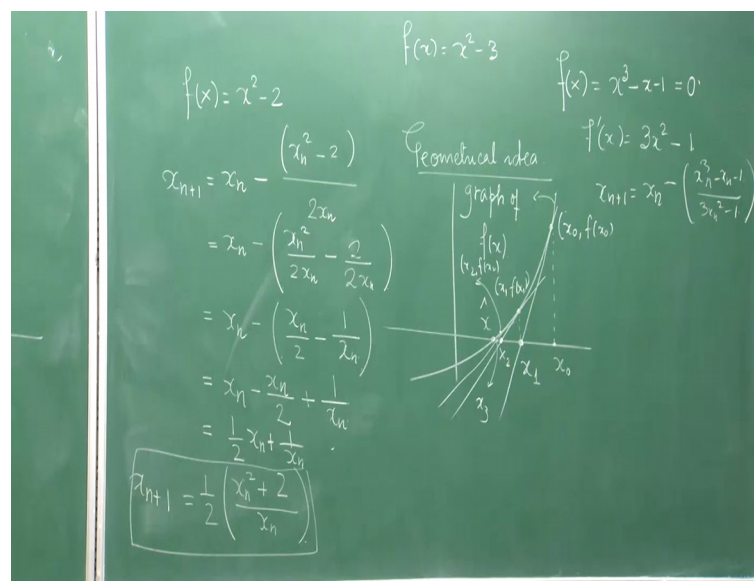 f(x) = x² - 3
f(x) = x² - 2
x_{n+1} = x_n - (x_n² - 2) / 2x_n
= x_n - (x_n²/2x_n - 2/2x_n)
= x_n - (x_n/2 - 1/x_n)
= x_n - x_n/2 + 1/x_n
= 1/2 x_n + 1/x_n
x_{n+1} = 1/2 (x_n² + 2 / x_n)
Geometrical idea
graph of
f(x)
(x₀, f(x₀)
(x₂, f(x₂)
(x₁, f(x₁)
x̂
x₂
x₁
x₀
x₃
f(x) = x³ - x - 1 = 0
f'(x) = 3x² - 1
x_{n+1} = x_n - (x_n³ - x_n - 1 / 3x_n² - 1)